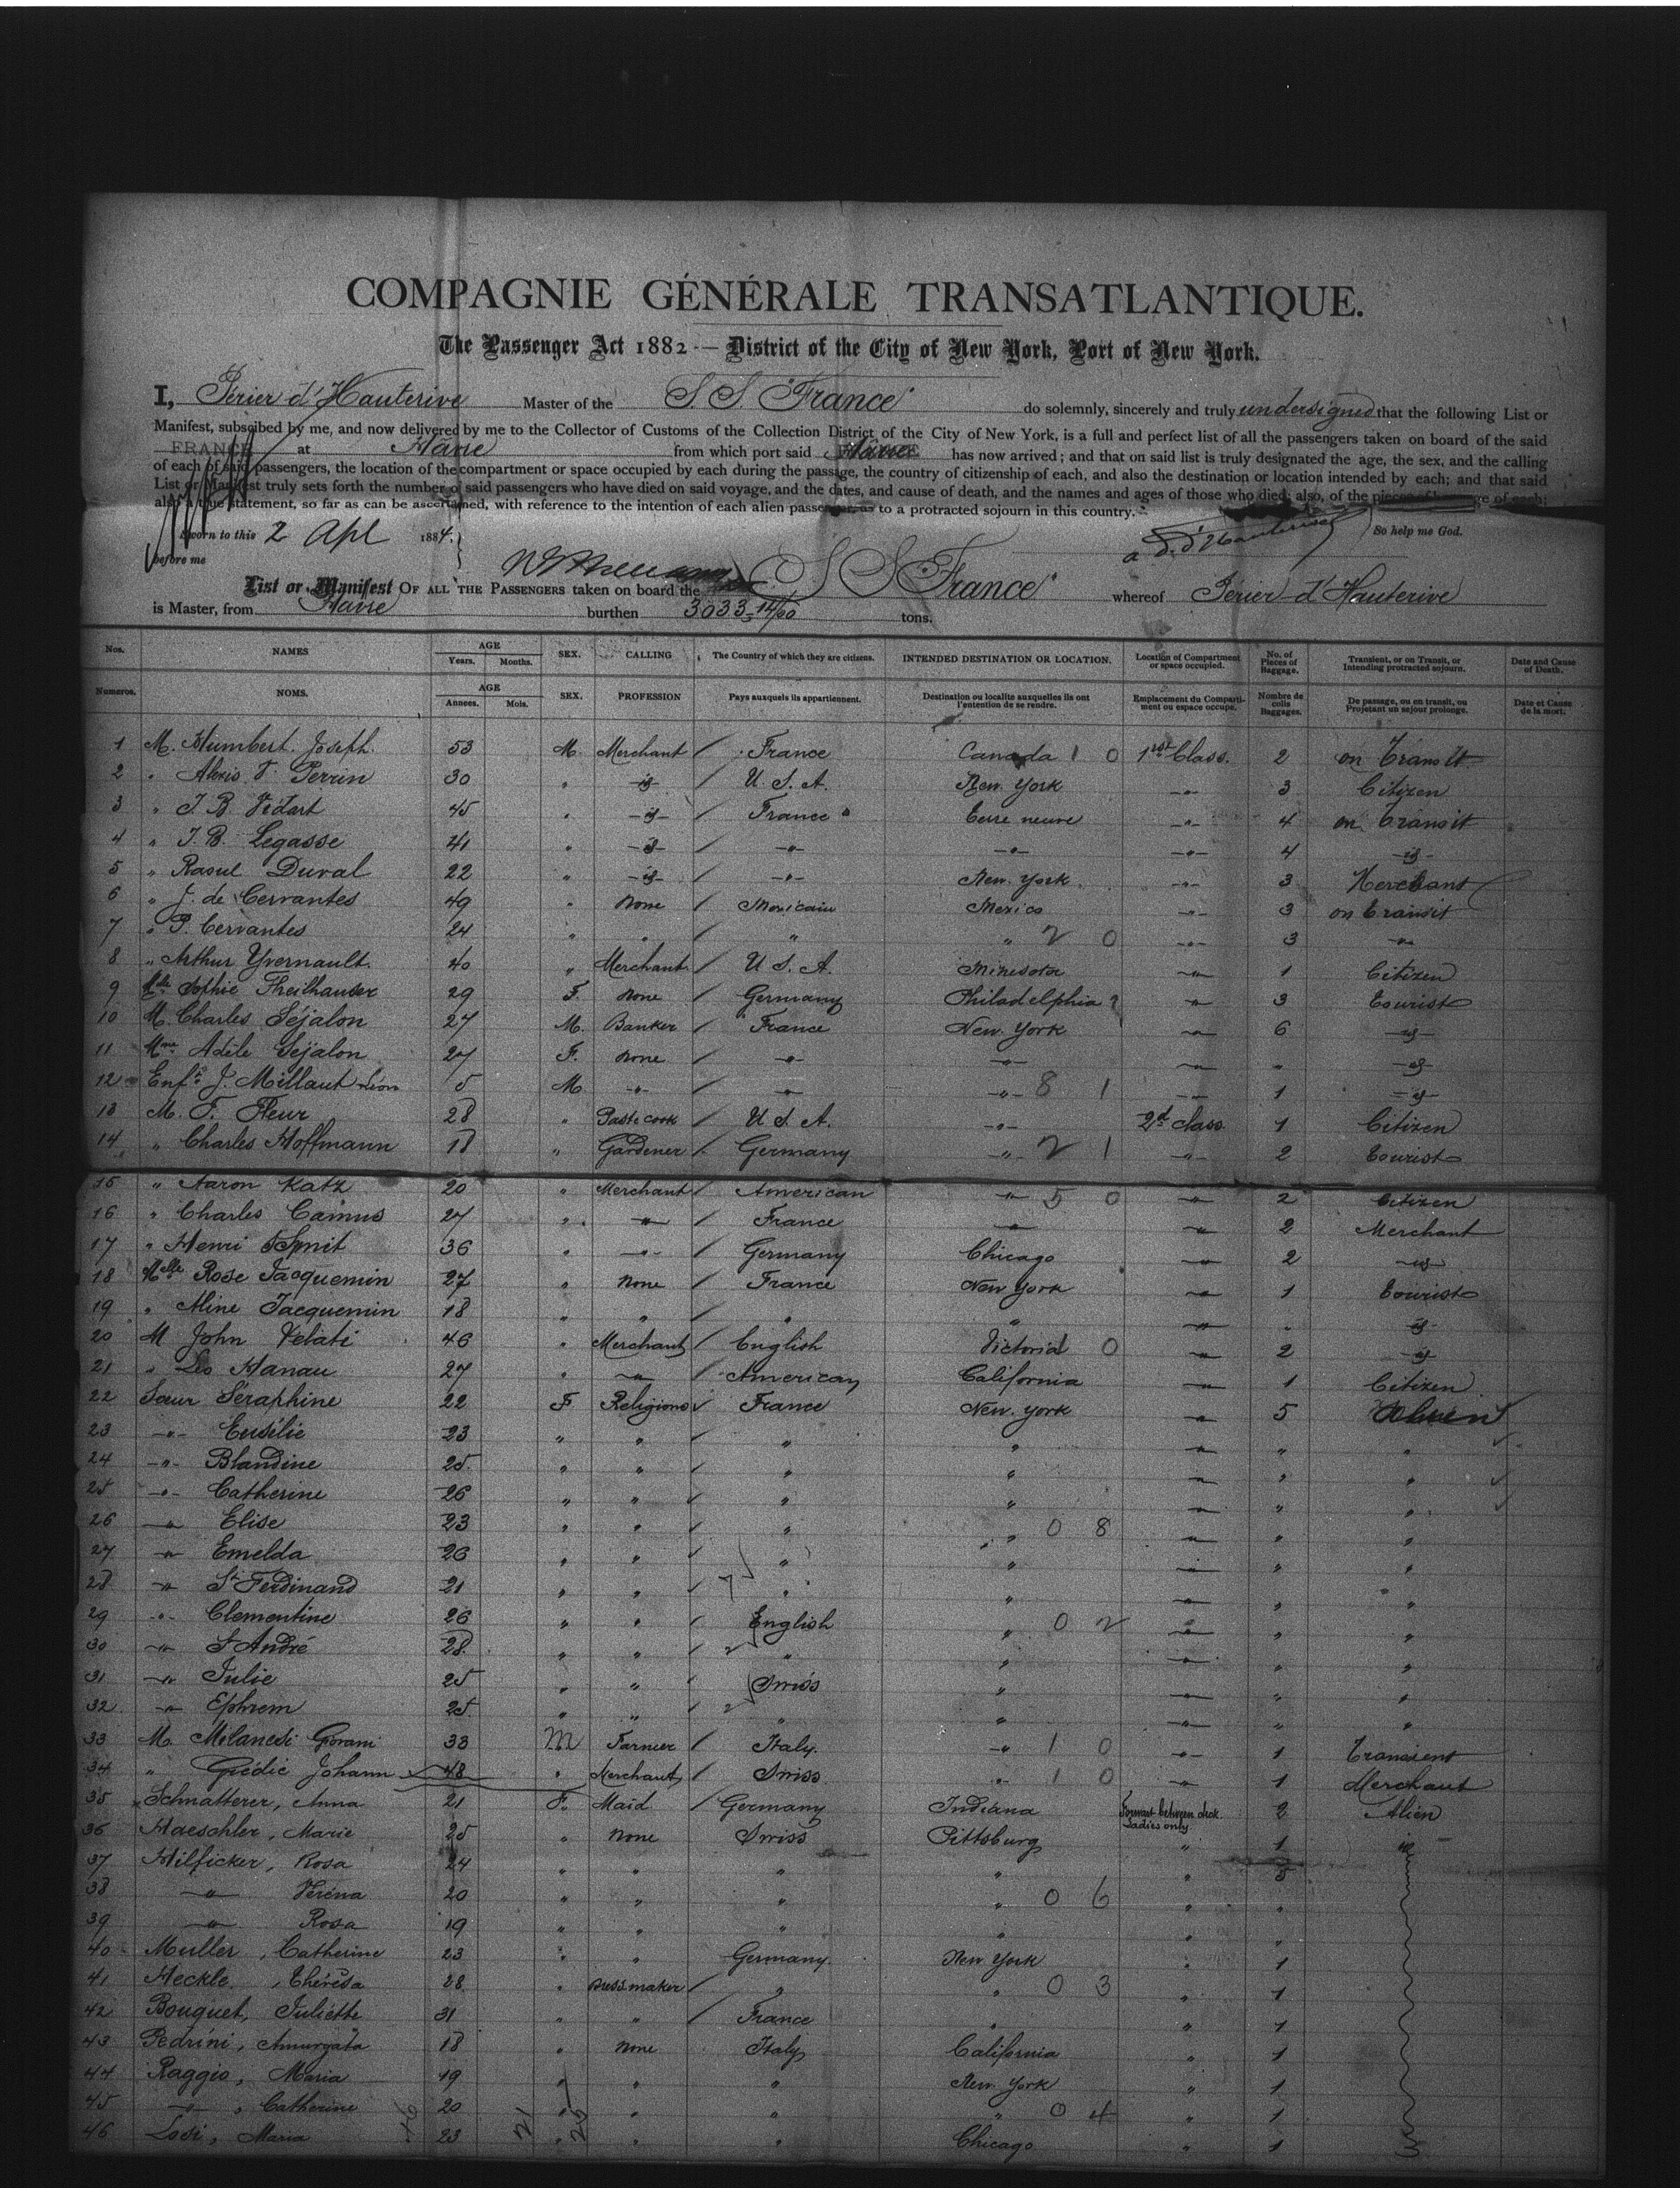 COMPAGNIE GÉNÉRALE TRANSATLANTIQUE.
The Passenger Act 1882 — District of the City of New York, Port of New York.
I, Périer d'Hauterive Master of the S. S. "France" do solemnly, sincerely and truly undersigned that the following List or
Manifest, subscibed by me, and now delivered by me to the Collector of Customs of the Collection District of the City of New York, is a full and perfect list of all the passengers taken on board of the said
FRANCE at Havre from which port said has now arrived; and that on said list is truly designated the age, the sex, and the calling
of each of said passengers, the location of the compartment or space occupied by each during the passage, the country of citizenship of each, and also the destination or location intended by each; and that said
List or Manifest truly sets forth the number of said passengers who have died on said voyage, and the dates, and cause of death, and the names and ages of those who died; also, of the pieces of of each;
also a true statement, so far as can be ascertained, with reference to the intention of each alien passenger, as to a protracted sojourn in this country.
Sworn to this 2 Apl 1884. So help me God.
before me
List or Manifest OF ALL THE PASSENGERS taken on board the S S France" whereof Périer d'Hauterive
is Master, from Havre burthen 3033 14/60 tons.
Nos. NAMES AGE Years. Months. SEX. CALLING The Country of which they are citizens. INTENDED DESTINATION OR LOCATION. Location of Compartment or space occupied. No. of Pieces of Baggage. Transient, or on Transit, or Intending protracted sojourn. Date and Cause of Death.
Numeros. NOMS. AGE Annees. Mois. SEX. PROFESSION Pays auxquels ils appartiennent. Destination ou localite auxquelles ils ont l'entention de se rendre. Emplacement du Compartiment ou espace occupe. Nombre de colis Baggages. De passage, ou en transit, ou Projetant un sejour prolonge. Date et Cause de la mort.
1 M. Humbert Joseph. 53 M. Merchant / France Canada 1 0 1st Class. 2 on Transit
2 " Alexis F. Perrin 30 " -id- / U. S. A. New York -"- 3 Citizen
3 " J. B. Vidart 45 " -id- / France Terre neuve -"- 4 on Transit
4 " J. B. Legasse 41 " -id- / -"- -"- -"- 4 -id-
5 " Raoul Duval 22 " -id- / -"- New York -"- 3 Merchant
6 " J. de Cervantes 49 " None / Mexicain Mexico -"- 3 on transit
7 " P. Cervantes 24 " " / " " 2 0 -"- 3 -"-
8 " Arthur Yvernault. 40 " Merchant / U. S. A. Minesota -"- 1 Citizen
9 Mlle Sophie Theilhauser 29 F. None / Germany Philadelphia -"- 3 Tourist
10 M. Charles Séjalon 27 M. Banker / France New York -"- 6 -id-
11 Mme Adèle Séjalon 27 F. None / -"- -"- -"- " -id-
12 Enft J. Millaut Léon 5 M -"- / -"- -"- 8 1 -"- 1 -id-
13 M. F. Fleur 28 " Paste cook / U. S. A. -"- 2d class 1 Citizen
14 " Charles Hoffmann 18 " Gardener / Germany -"- 2 1 -"- 2 Tourist
15 " Aaron Katz 20 " Merchant / American -"- 5 0 -"- 2 Citizen
16 " Charles Camus 27 " -"- / France -"- -"- 2 Merchant
17 " Henri 36 " -"- / Germany Chicago -"- 2 -id-
18 Melle Rose Jacquemin 27 " None / France New York -"- 1 Tourist
19 " Aline Jacquemin 18 " " / " " -"- " -id-
20 M John Velati 46 " Merchant / English Victoria 1 0 -"- 2 -id-
21 " Léo Hanau 27 " -"- / American California -"- 1 Citizen
22 Sœur Séraphine 22 F. Religions France New York -"- 5
23 -"- Eusélie 23 " " " " -"- " "
24 -"- Blandine 25 " " " " -"- " "
25 -"- Catherine 26 " " " " -"- " "
26 -"- Elise 23 " " " " 0 8 -"- " "
27 -"- Emelda 26 " " " " -"- " "
28 -"- St Ferdinand 21 " " 7 " " -"- " "
29 -"- Clementine 26 " " / English " 0 2 -"- " "
30 -"- St André 28 " " / 2 " " -"- " "
31 -"- Julie 25 " " / Swiss " -"- " "
32 -"- Ephrem 25 " " / 2 " " -"- " "
33 M. Milanesi 33 M Farmer / Italy. -"- 1 0 -"- 1 Transient
34 " Johann 48 " Merchant / Swiss -"- 1 0 -"- 1 Merchant
35 Schnatterer, Anna 21 F. Maid / Germany Indiana Forward between deck Ladies only 2 Alien
36 Haeschler, Marie 25 " None Swiss Pittsburg " 1 id
37 Hilficker, Rosa 24 " " " " " 5
38 -"- Véréna 20 " " " " 0 6 " "
39 -"- Rosa 19 " " " " " "
40 Muller, Catherine 23 " " Germany. New York " 1
41 Heckle, Thérèsa 28 " Dressmaker / " " 0 3 " 1
42 Bouquet, Juliette 31 " " / France " " 1
43 Pedrini, 18 " None Italy California " 1
44 Raggio, Maria 19 " " " New York " 1
45 -"- , Catherine 20 " " " " 0 4 " 1
46 Losi, Maria 23 " " " Chicago " 1